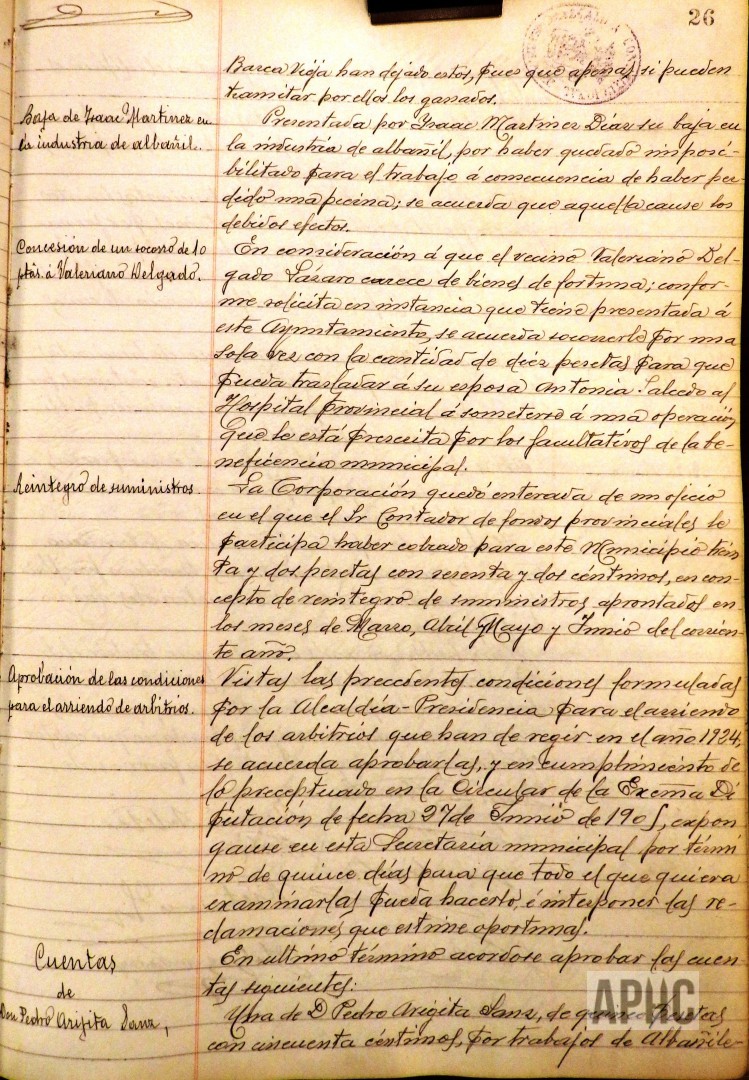 26
Barca Vieja han dejado estos, pues que apenas si pueden
tramitar por ellos los ganados.
Baja de Isaac Martinez en
la industria de albañil.
Presentada por Ysaac Martinez Díaz su baja en
la industria de albañil, por haber quedado imposi-
bilitado para el trabajo á consecuencia de haber per-
dido una pierna; se acuerda que aquella cause los
debidos efectos.
Concesión de un socorro de 10
ptas. á Valeriano Delgado.
En consideración á que el vecino Valeriano Del-
gado Lázaro carece de bienes de fortuna; confor-
me solicita en instancia que tiene presentada á
este Ayuntamiento, se acuerda socorrerle por una
sola vez con la cantidad de diez pesetas para que
pueda trasladar á su esposa Antonia Salcedo al
Hospital provincial á someterse á una operación
que le está prescrita por los facultativos de la be-
neficencia municipal.
Reintegro de suministros.
La Corporación quedó enterada de un oficio
en el que el Sr Contador de fondos provinciales le
participa haber cobrado para este Municipio trein
ta y dos pesetas con sesenta y dos céntimos, en con-
cepto de reintegro de suministros aprontados en
los meses de Marzo, Abril Mayo y Junio del corrien-
te año.
Aprobación de las condiciones
para el arriendo de arbitrios.
Vistas las precedentes condiciones formuladas
por la Alcaldía-Presidencia para el arriendo
de los arbitrios que han de regir en el año 1924,
se acuerda aprobarlas, y en cumplimiento de
lo preceptuado en la Circular de la Excma Di
putación de fecha 27 de Junio de 1905, expon
ganse en esta Secretaría municipal por térmi
no de quince días para que todo el que quiera
examinarlas pueda hacerlo, é interponer las re-
clamaciones que estime oportunas.
Cuentas
de
Don Pedro Arigita Sanz,
En ultimo término acordose aprobar las cuen-
tas siguientes:
Una de D Pedro Arigita Sanz, de quince pesetas
con cincuenta céntimos, por trabajos de Albañile-
APHC